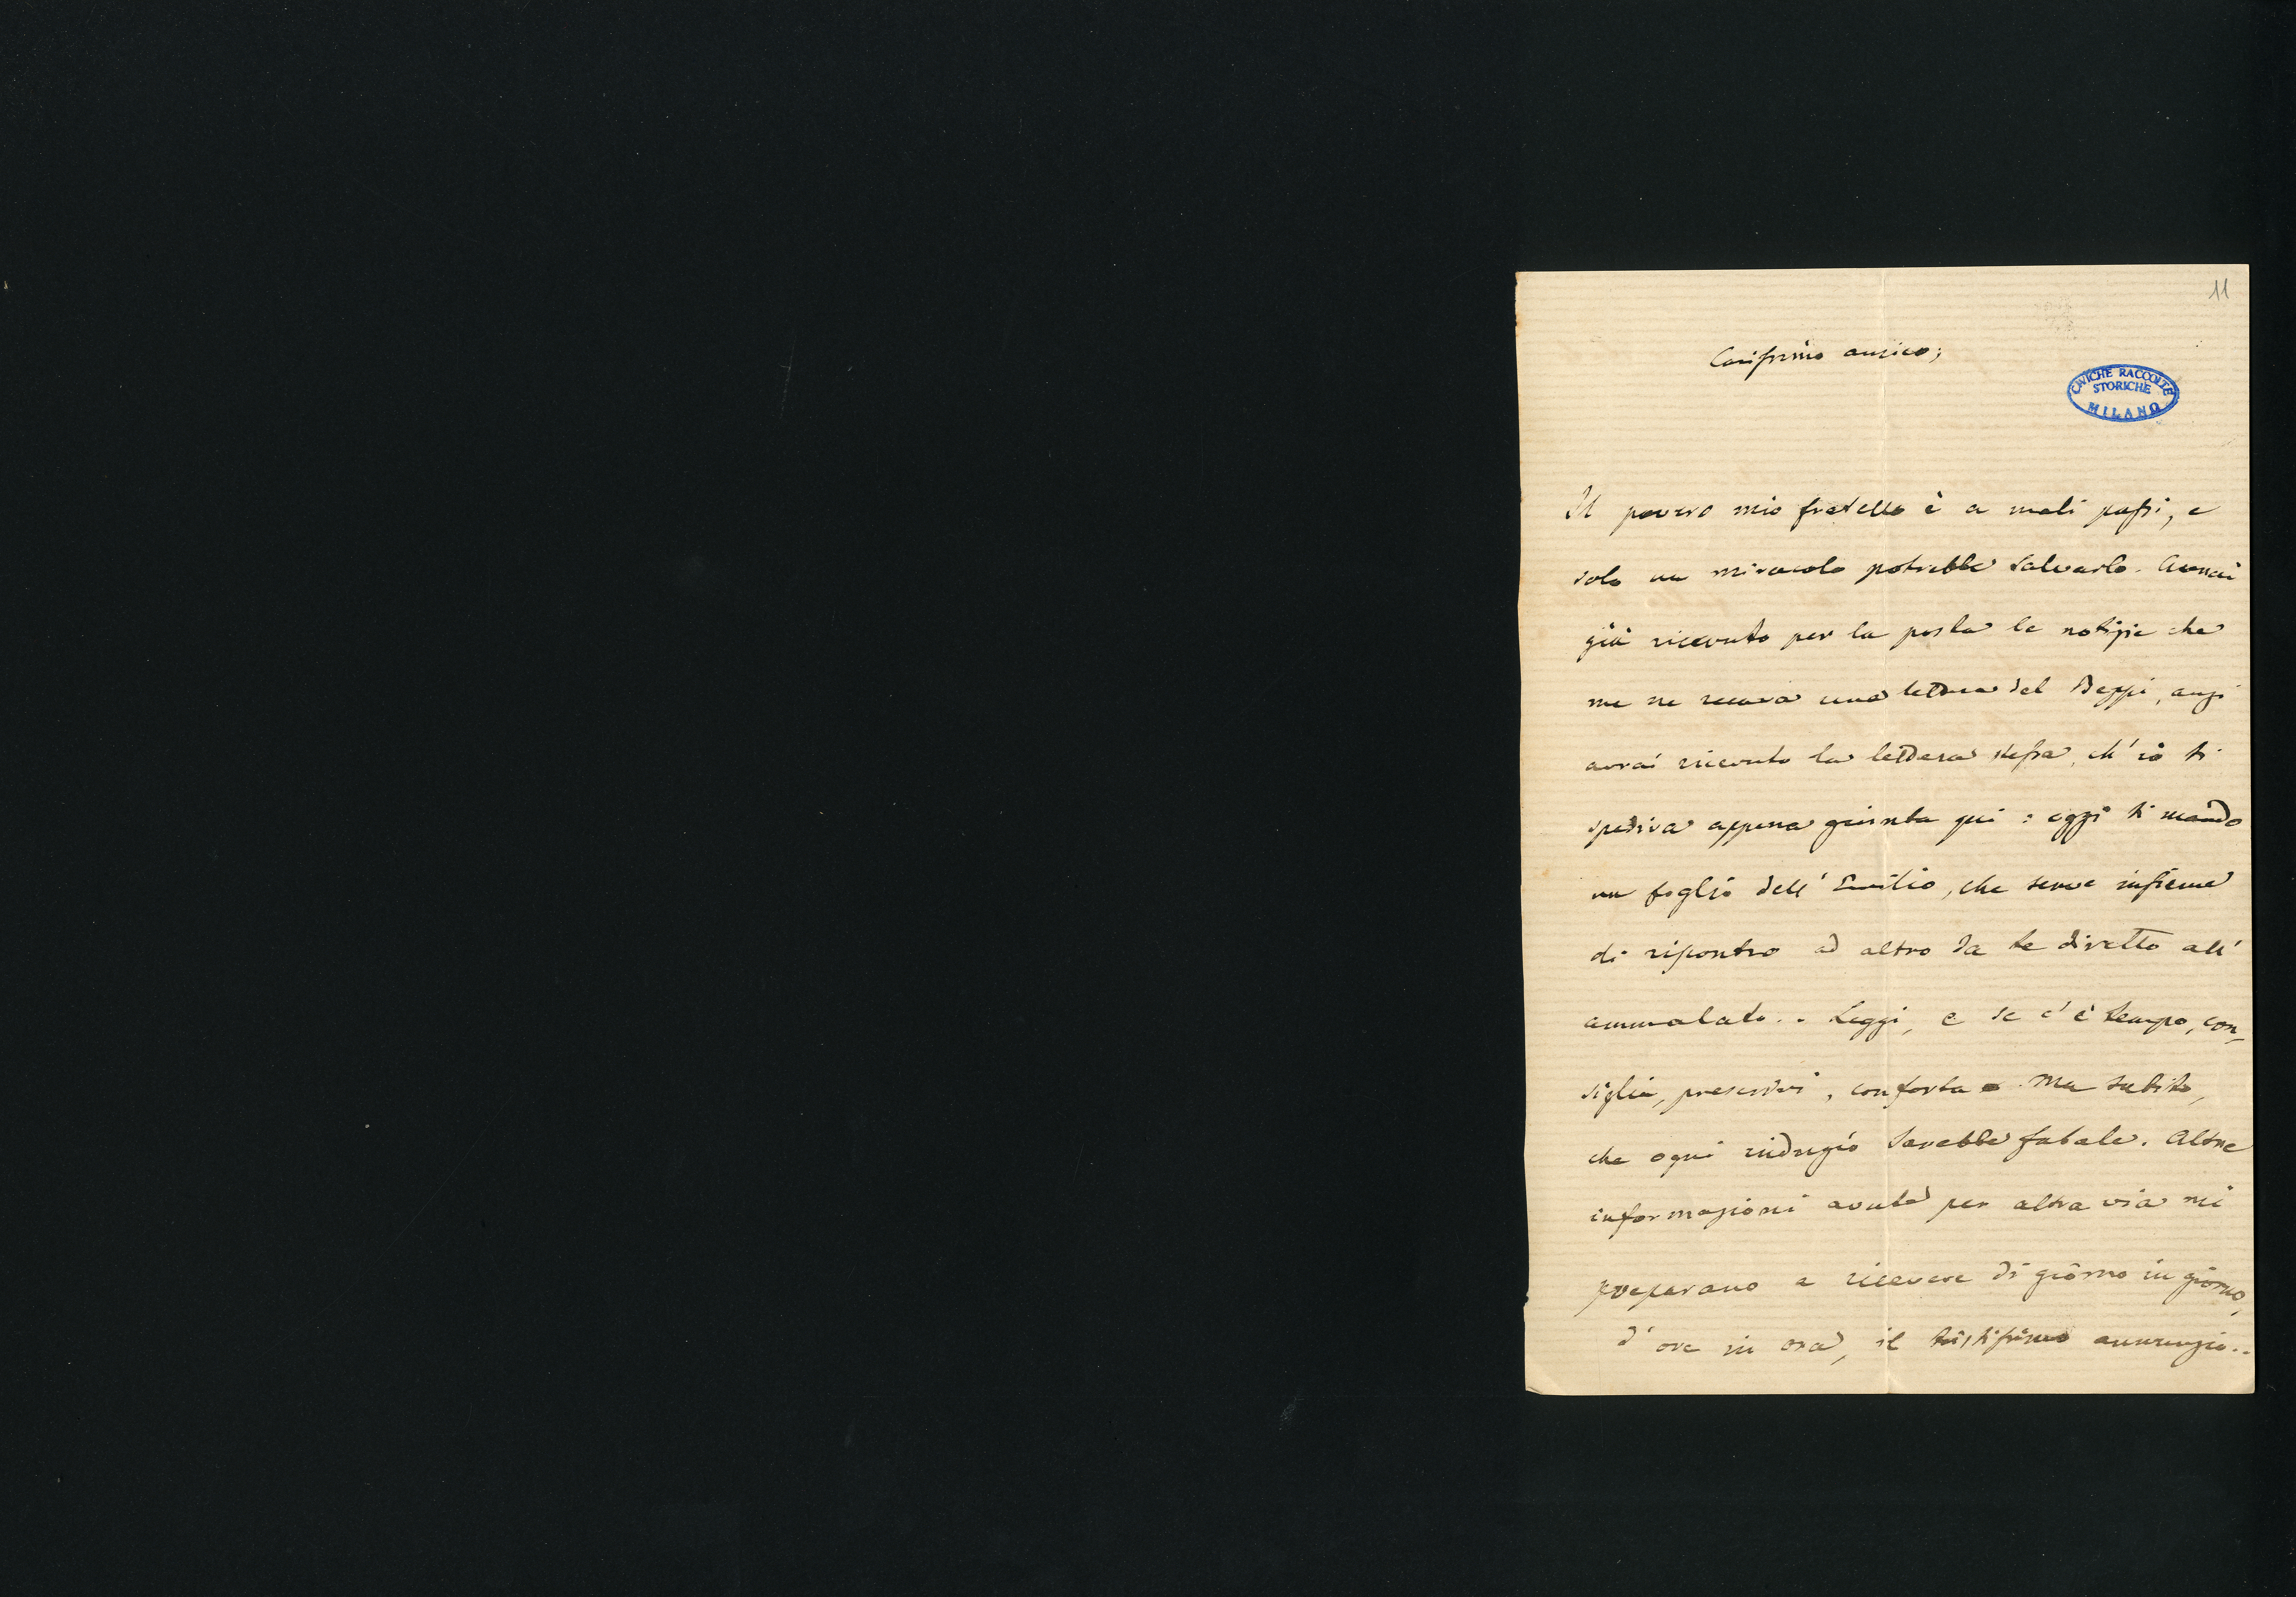 11
Carissimo amico;
CIVICHE RACCOLTE
STORICHE
MILANO
Il povero mio fratello è a mali passi, e
solo un miracolo potrebbe salvarlo. Avrai
già ricevuto per la posta le notizie che
me ne recava una lettera del Beppi, anzi
avrai ricevuto la lettera stessa, ch'io ti
spediva appena giunta qui: oggi ti mando
un foglio dell'Emilio, che serve insieme
di riscontro ad altro da te diretto all'
ammalato.. Leggi, e se c'è tempo, con-
siglia, prescrivi, conforta. Ma subito,
che ogni indugio sarebbe fatale. Altre
informazioni avute per altra via mi
preparano a ricevere di giorno in giorno,
d'ora in ora, il tristissimo annunzio..